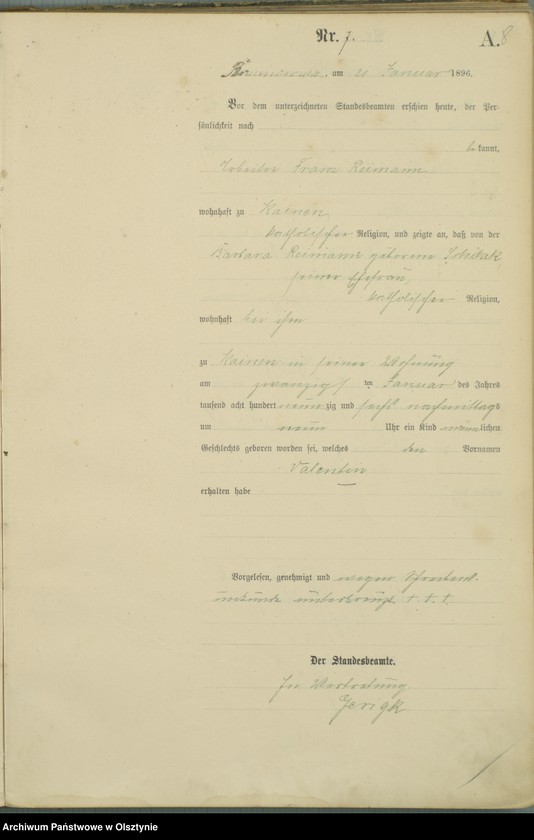 Nr. 7.
A. 8
am 21 Januar 1896.
Vor dem unterzeichneten Standesbeamten erschien heute, der Per-
sönlichkeit nach
bekannt,
Arbeiter Franz Reimann
wohnhaft zu Kainen
katholischer Religion, und zeigte an, daß von der
Barbara Reimann geborene
seiner Ehefrau
katholischer Religion,
wohnhaft bei ihm
zu Kainen in seiner Wohnung
am zwanzigsten Januar des Jahres
tausend acht hundert neunzig und sechs nachmittags
um neun Uhr ein Kind männlichen
Geschlechts geboren worden sei, welches den Vornamen
Valentin
erhalten habe
Vorgelesen, genehmigt und wegen Schreibens-
unkunde unterkreuzt † † †
Der Standesbeamte.
In Vertretung
Jerigk
Archiwum Państwowe w Olsztynie